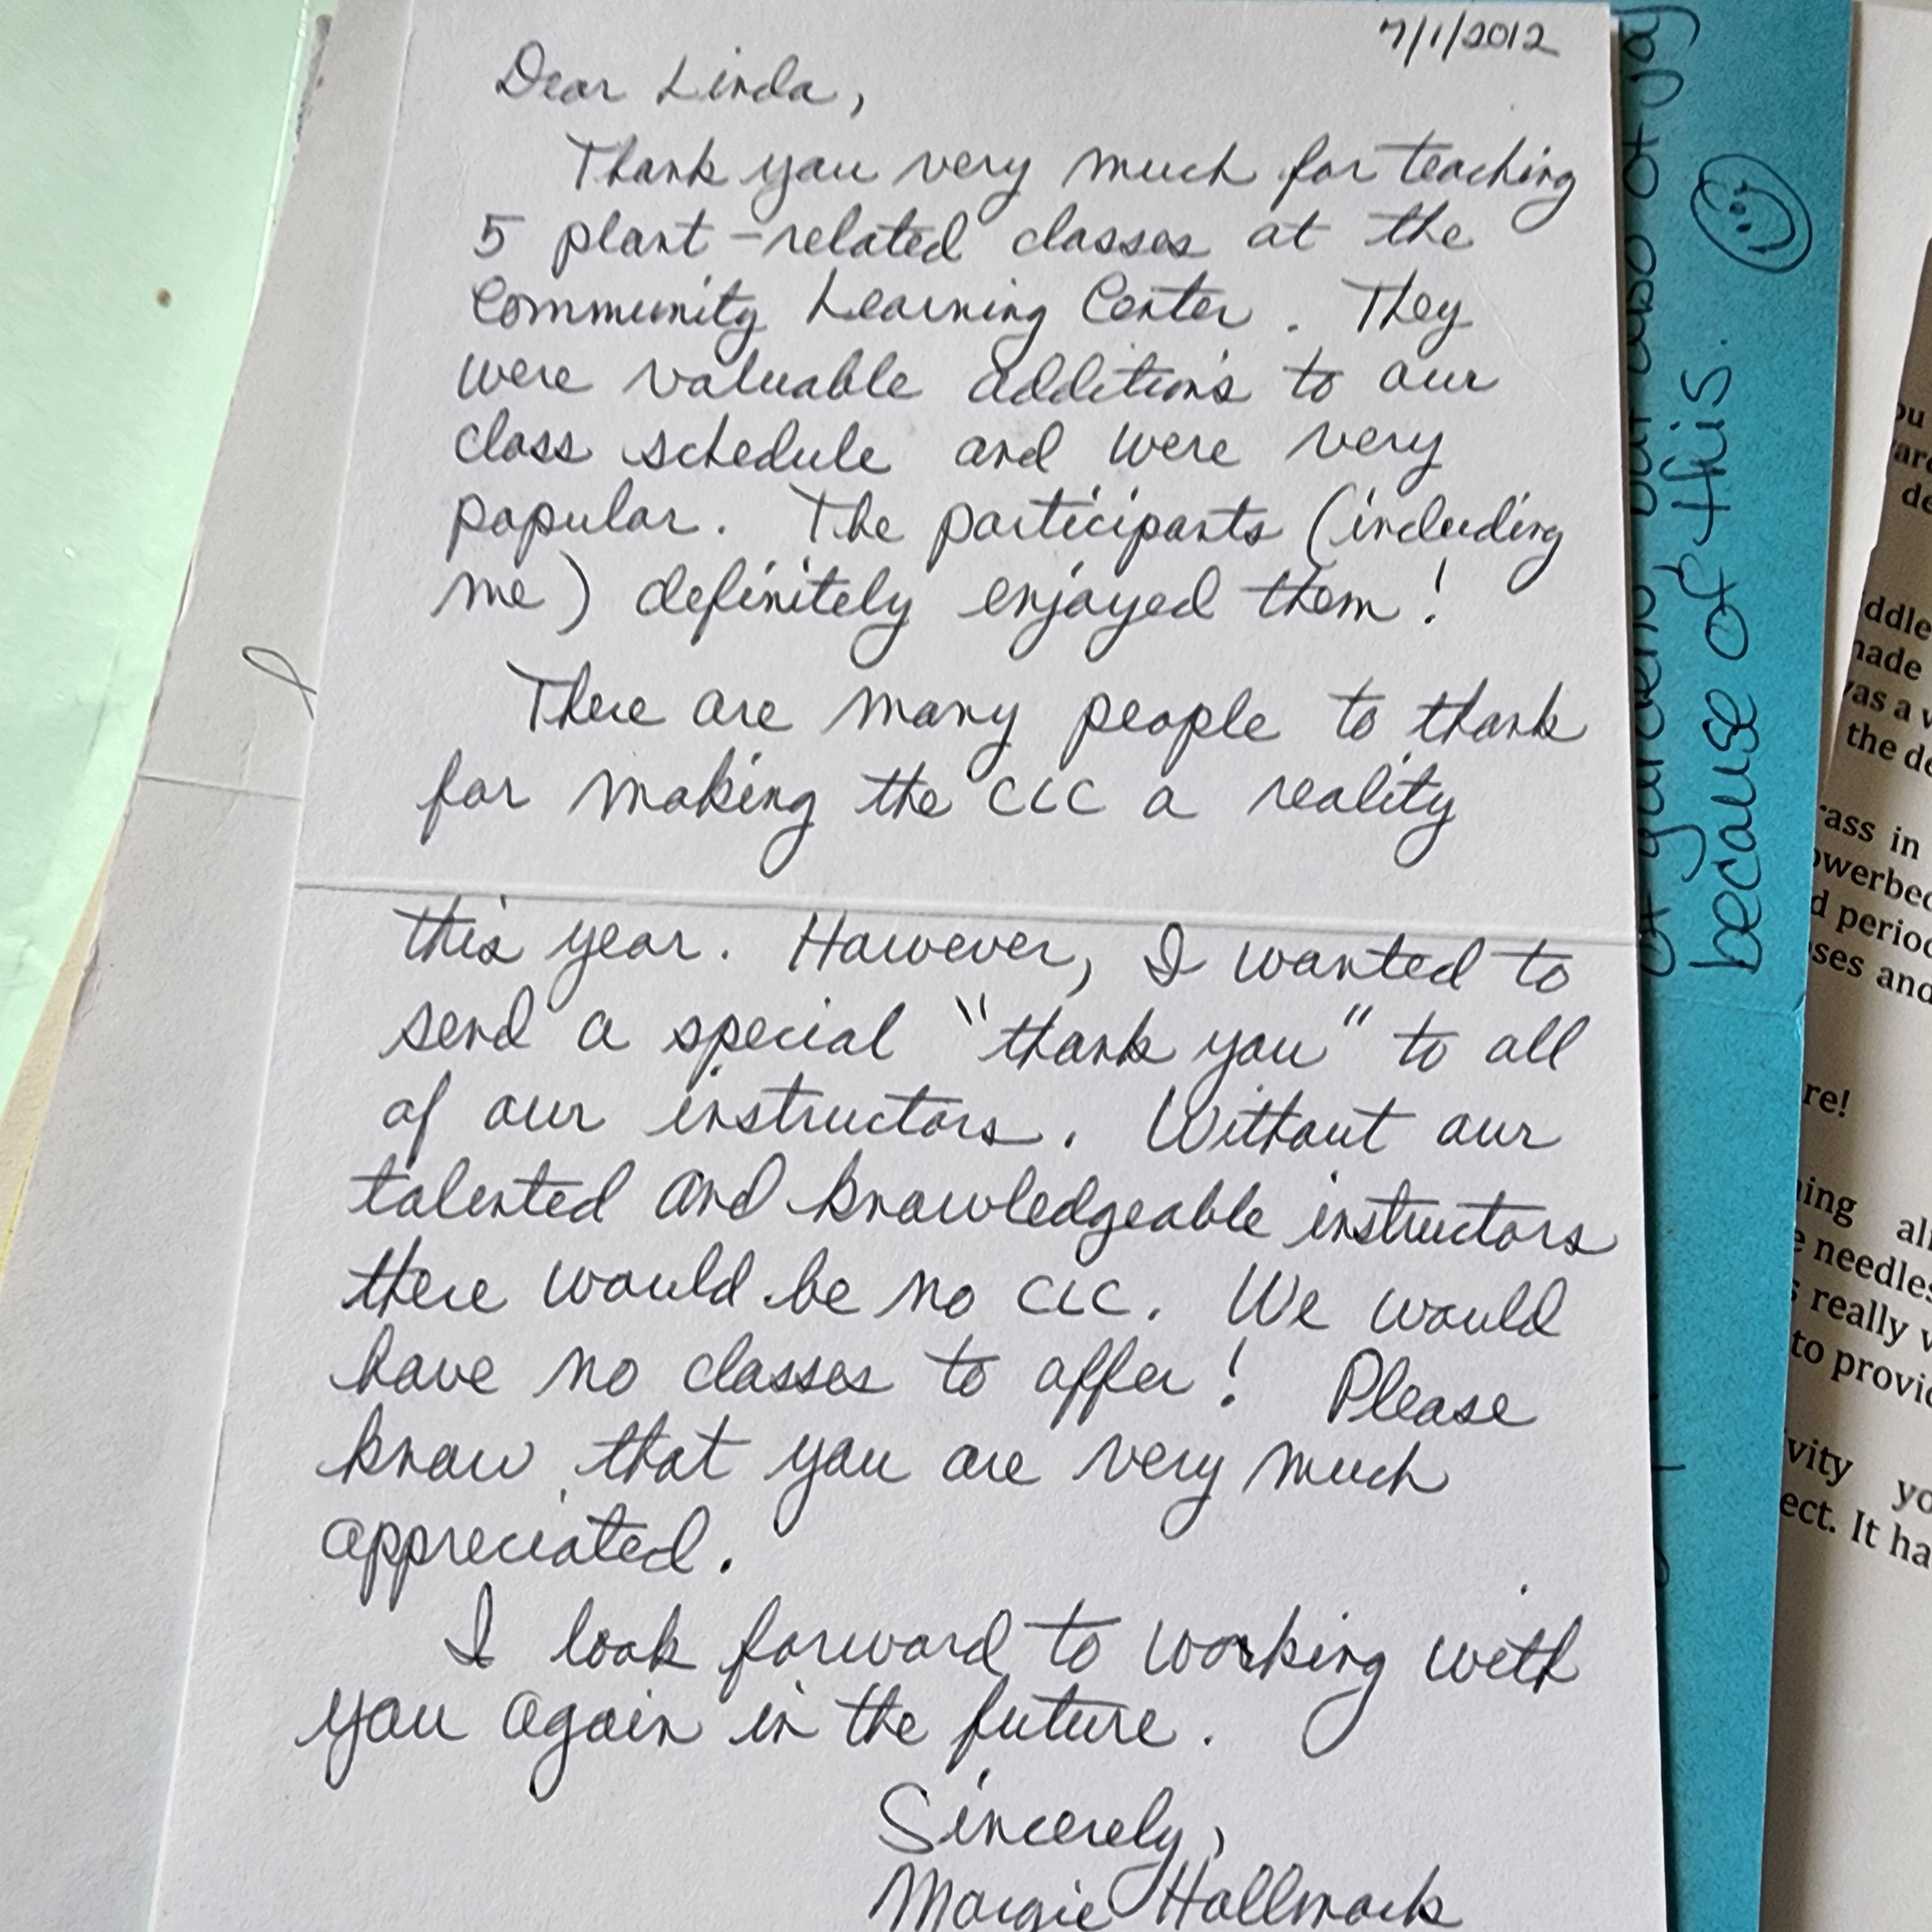 7/1/2012
Dear Linda,
Thank you very much for teaching
5 plant-related classes at the
Community Learning Center. They
were valuable additions to our
class schedule and were very
popular. The participants (including
me) definitely enjoyed them!
There are many people to thank
for making the CLC a reality
this year. However, I wanted to
send a special "thank you" to all
of our instructors. Without our
talented and knowledgeable instructors
there would be no CLC. We would
have no classes to offer! Please
know that you are very much
appreciated.
I look forward to working with
you again in the future.
Sincerely,
Margie Hallmark
because of this.
the
in
and
re!
needles
really
to
ect. It